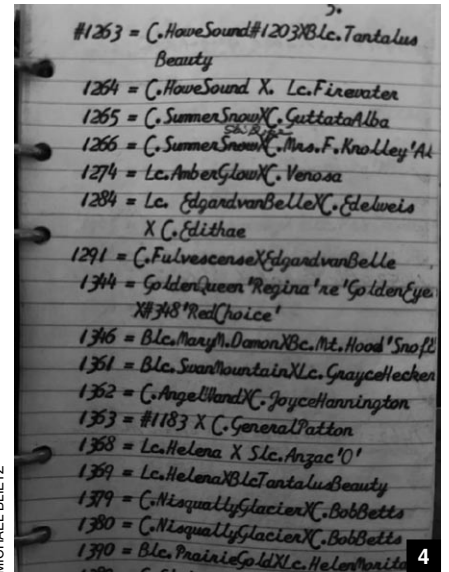 3.
#1263 = C.HoweSound#1203XBlc.Tantalus
Beauty
1264 = C.HoweSound X. Lc.Firewater
1265 = C.SummerSnowXC.GuttataAlba
1266 = C.SummerSnowXC.Mrs.F.Knolley'Al
1274 = Lc.AmberGlowXC.Venosa
1284 = Lc. EdgardvanBelleXC.Edelweis
X C.Edithae
1291 = C.FulvescenseXEdgardvanBelle
1344 = GoldenQueen'Regina're'GoldenEye
X#348'RedChoice'
1346 = Blc.MaryM.DamonXBc.Mt.Hood'Snofl
1361 = Blc.SwanMountainXLc.GrayceHecken
1362 = C.AngellandXC.JoyceHannington
1363 = #1183 X C.GeneralPatton
1368 = Lc.Helena X Slc.Anzac'O'
1369 = Lc.HelenaXBlcTantalusBeauty
1379 = C.NisquallyGlacierXC.BobBetts
1380 = C.NisquallyGlacierXC.BobBetts
1390 = Blc.PrairieGoldXLc.HelenMorita
4